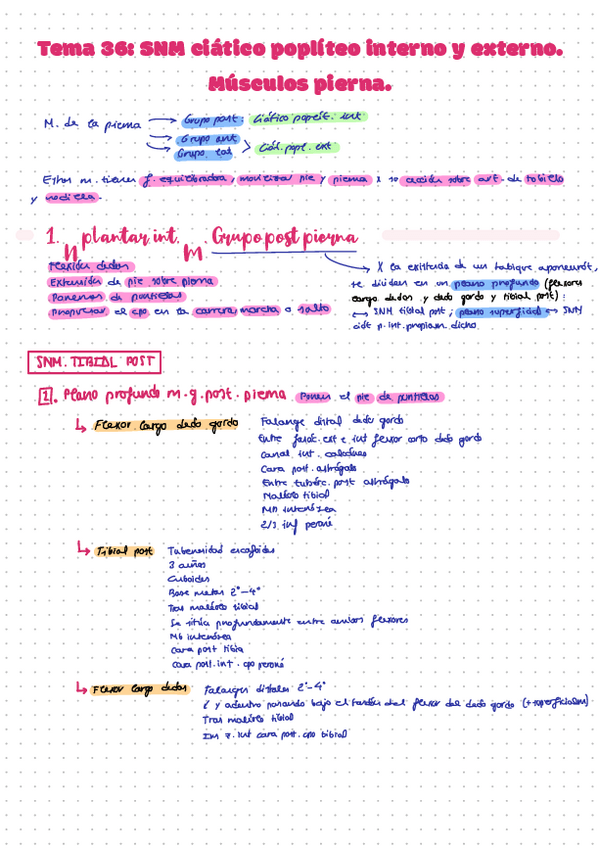 Tema 36: SNM ciático poplíteo interno y externo.
Músculos pierna.
M. de la pierna → Grupo post: Ciático poplít. int
Grupo ant
Grupo lat > Ciát. popl. ext
Estos m. tienen f. equilibradora, movilizar pie y pierna x su acción sobre art. de tobillo
y rodilla.
1. N plantar int. M. Grupo post pierna
Flexión dedos
Extensión de pie sobre pierna
Ponernos de puntillas
Propulsar el cpo en la carrera, marcha o salto
X la existencia de un tabique aponeurót,
se dividen en un plano profundo (flexores
largo dedos y dedo gordo y tibial post):
↔ SNM tibial post; plano superficial ↔ SNM
ciát p. int. propiam. dicho
SNM. TIBIAL POST
1. Plano profundo m. g. post. pierna Poner el pie de puntillas
↳ Flexor largo dedo gordo
Falange distal dedo gordo
Entre fascíc. ext e int flexor corto dedo gordo
Canal int. calcáneo
Cara post. astrágalo
Entre tubérc. post astrágalo
Maléolo tibial
Mb interósea
2/3 inf peroné
↳ Tibial post
Tuberosidad escafoides
3 cuñas
Cuboides
Base metas 2º-4º
Tras maléolo tibial
Se sitúa profundamente entre ambos flexores
Mb interósea
Cara post tibia
Cara post. int. cpo peroné
↳ Flexor largo dedos
Falanges distales 2º-4º
y adentro pasando bajo el tendón del flexor del dedo gordo (++superficialm)
Tras maléolo tibial
int cara post. cpo tibial